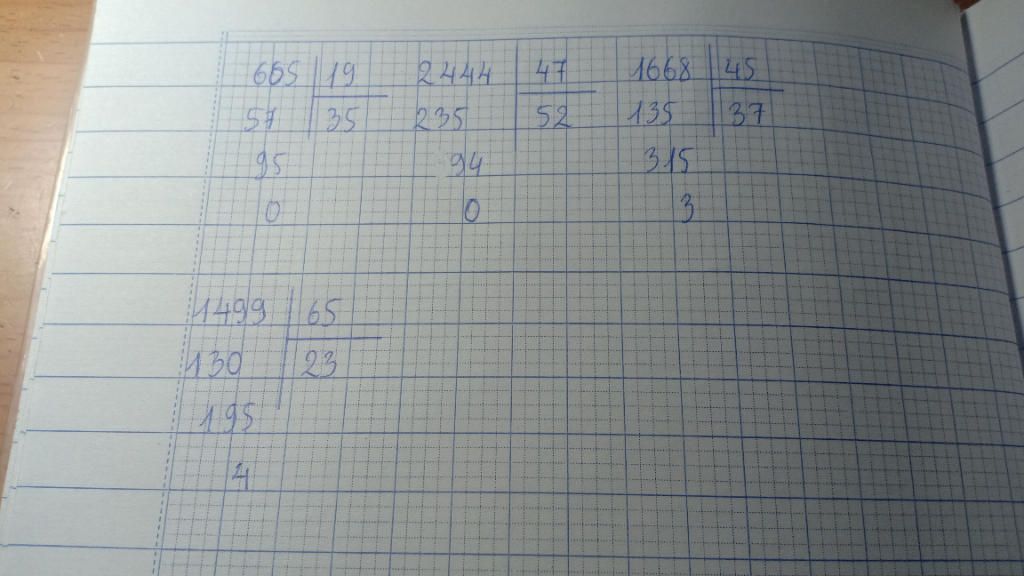 605 19 2444 47 1668 45
57 35 235 52 135 37
95 94 315
0 0 3
1499 65
130 23
195
4